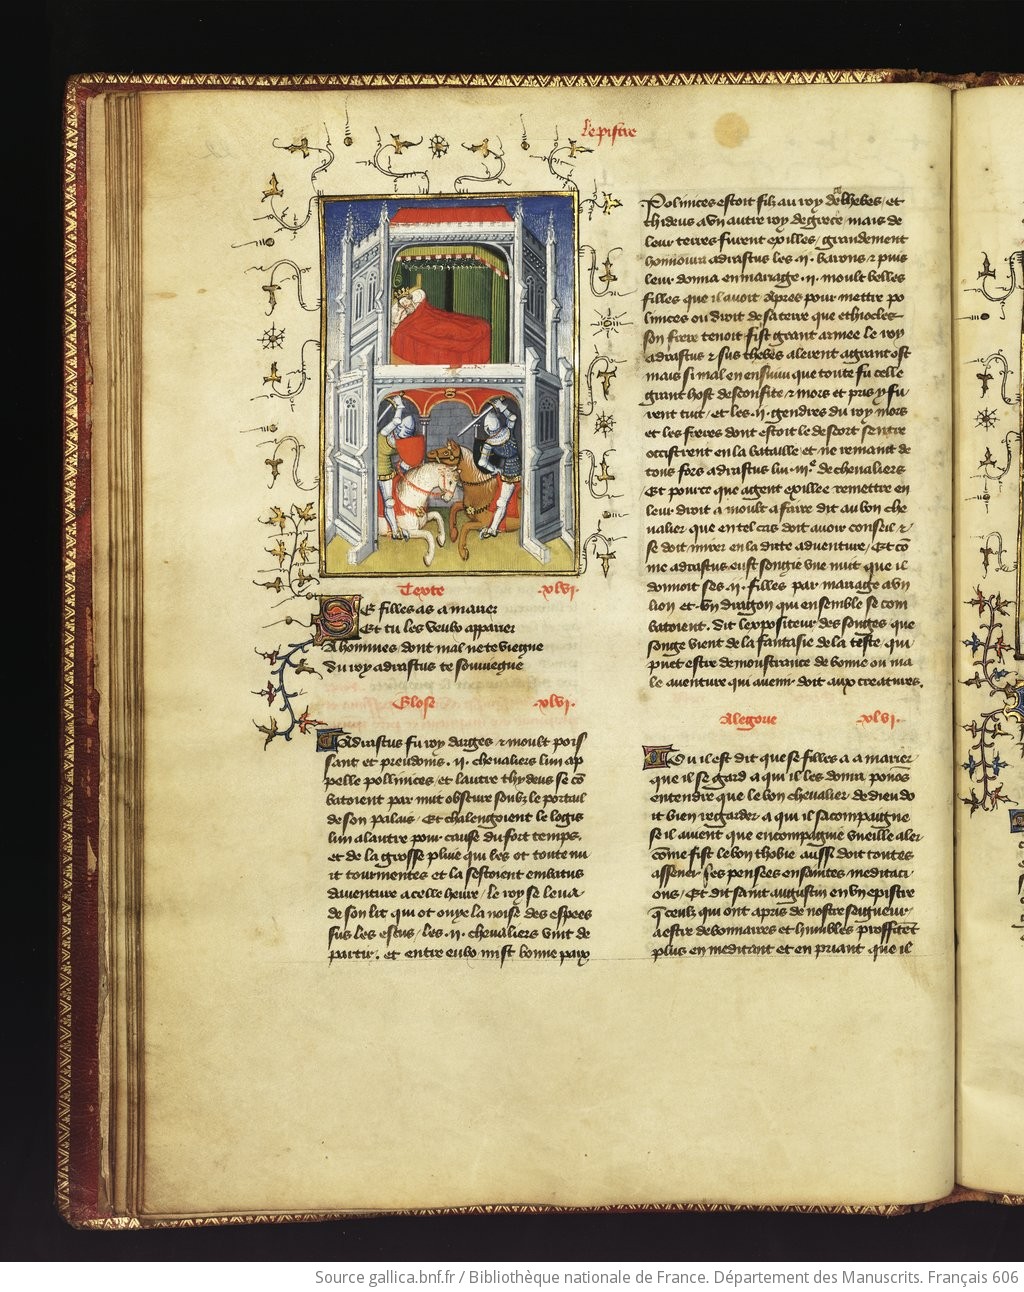 Lepistre
Texte .xlvi.
Se filles as a marier
Et tu les veulx apparier
A hommes dont mal ne te viegne
Du roy adrastus te souviegne
Glose .xlvi.
Adrastus fu roy darges & moult poiss
sant et preudoms .ii. chevaliers lun ap
pelle pollinices et lautre thydeus se cō
batoient par nuit obscure soubz le portail
de son palais / Et chalengoient le logis
lun a lautre pour cause du fort temps,
et de la grosse pluie qui les ot toute nu
it tourmentes et la sestoient embatus
daventure a celle heure / le roy se leva
de son lit qui ot ouye la noise des espees
sus les escus / les .ii. chevaliers vint de
partir. et entre eulx mist bonne paix
Polinices estoit filz au roy de thebes, et
thideus a un autre roy de grece mais de
leur terres furent exilles / grandement
honnoura adrastus les .ii. barons & puis
leur donna en mariage .ii. moult belles
filles que il avoit Apres pour mettre po
linices ou droit de sa terre que ethiocles
son frere tenoit fist grant armee le roy
adrastus & sus thebes alerent a grant ost
mais si mal en ensuivi que toute fu celle
grant host desconfite / & mors et pris y fu
rent tuit / et les .ii. gendres du roy mors
et les freres dont estoit le descort sentre
occistrent en la bataille / et ne remaint de
tous fors adrastus lui .iii.e de chevaliers
Et pource que a gent exillee remettre en
leur droit a moult a faire dit au bon che
valier que en tel cas doit avoir conseil &
se doit mirer en la dicte adventure / Et cō
me adrastus eust songie une nuit que il
donnoit ses .ii. filles par mariage a un
lion et un dragon qui ensemble se com
batoient. Dit lexpositeur des songes que
songe vient de la fantasie de la teste qui
puet estre demonstrance de bonne ou ma
le aventure qui avenir doit aux creatures.
Alegorie .xlvi.
Ou il est dit que se filles a a marier
que il se gard a qui il les donra pouōs
entendre que le bon chevalier de dieu do
it bien regarder a qui il sacompaigne
se il avient que en compaignie vueille aler
cōme fist le bon thobie aussi doit toutes
asseoir ses pensees en saintes meditaci
ons / Et dit saint augustin en un epistre
q̄ ceulz qui ont apris de nostre seigneur
a estre debonnaires et humbles prouffitēt
plus en meditant et en priant que il
Source gallica.bnf.fr / Bibliothèque nationale de France. Département des Manuscrits. Français 606